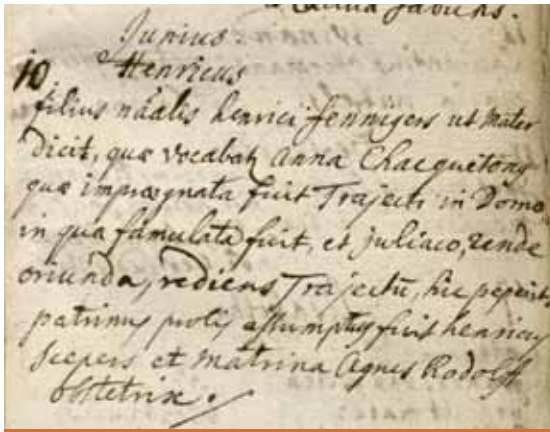 Junius.
10. Henricus
filius nãalis henrici fennigers ut mater
dicit, quæ vocabat Anna Chacquetong
quæ imprægnata fuit Trajecti in Domo
in qua famulata fuit, et juliaco,
oriunda, rediens Trajectũ, hic peperit,
patrinus prolis assumptus fuit henricus
scepers et matrina Agnes Rodolff
obstetrix.